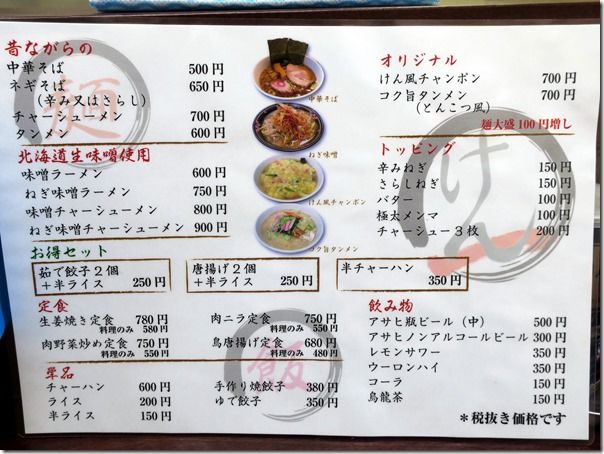 昔ながらの
中華そば 500円
ネギそば 650円
(辛み又はさらし)
チャーシューメン 700円
タンメン 600円
北海道生味噌使用
味噌ラーメン 600円
ねぎ味噌ラーメン 750円
味噌チャーシューメン 800円
ねぎ味噌チャーシューメン 900円
中華そば
ねぎ味噌
けん風チャンポン
コク旨タンメン
オリジナル
けん風チャンポン 700円
コク旨タンメン 700円
(とんこつ風)
麺大盛100円増し
トッピング
辛みねぎ 150円
さらしねぎ 150円
バター 100円
極太メンマ 100円
チャーシュー3枚 200円
お得セット
茹で餃子2個
+半ライス 250円
唐揚げ2個
+半ライス 250円
半チャーハン
350円
定食
生姜焼き定食 780円
料理のみ 580円
肉野菜炒め定食 750円
料理のみ 550円
肉ニラ定食 750円
料理のみ 550円
鳥唐揚げ定食 680円
料理のみ 480円
単名
チャーハン 600円
ライス 200円
半ライス 150円
手作り焼餃子 380円
ゆで餃子 350円
飲み物
アサヒ瓶ビール(中) 500円
アサヒノンアルコールビール 300円
レモンサワー 350円
ウーロンハイ 350円
コーラ 150円
烏龍茶 150円
*税抜き価格です
麺
けん
飯